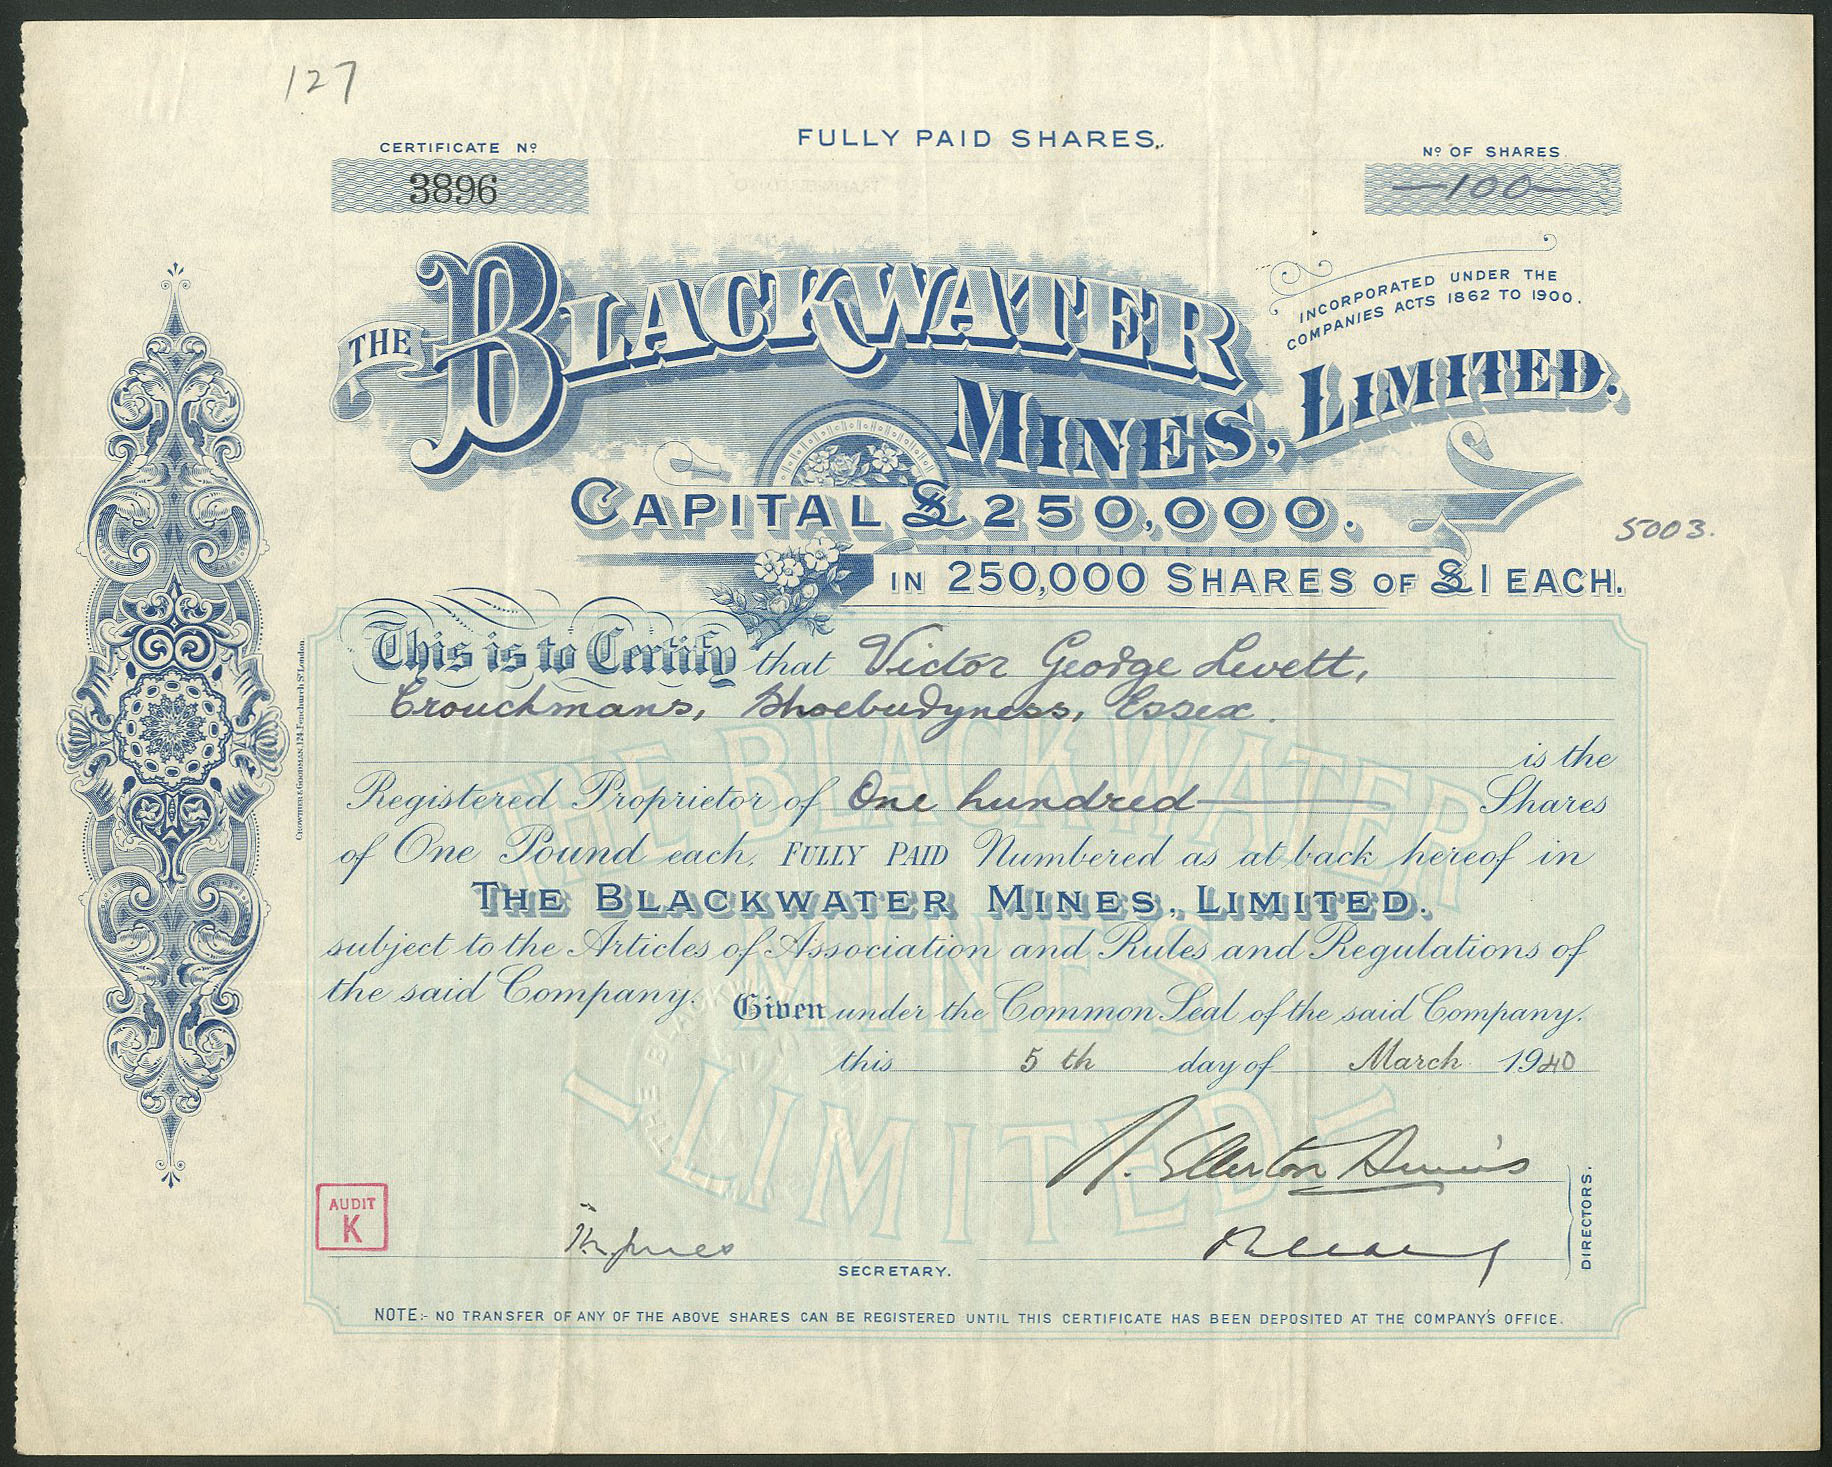 127
FULLY PAID SHARES.
CERTIFICATE Nº
3896
Nº OF SHARES
—100—
INCORPORATED UNDER THE
COMPANIES ACTS 1862 TO 1900.
THE BLACKWATER
MINES, LIMITED.
CAPITAL £250,000.
5003.
IN 250,000 SHARES OF £1 EACH.
This is to Certify that Victor George Levett,
Crouchmans, Shoeburyness, Essex.
is the
Registered Proprietor of One hundred Shares
of One Pound each, FULLY PAID Numbered as at back hereof in
THE BLACKWATER MINES, LIMITED.
subject to the Articles of Association and Rules and Regulations of
the said Company. Given under the Common Seal of the said Company.
this 5th day of March 1940
DIRECTORS.
AUDIT
K
SECRETARY.
NOTE:- NO TRANSFER OF ANY OF THE ABOVE SHARES CAN BE REGISTERED UNTIL THIS CERTIFICATE HAS BEEN DEPOSITED AT THE COMPANY'S OFFICE.
CROWTHER & GOODMAN, 124, Fenchurch St. London.
THE BLACKWATER
MINES
LIMITED